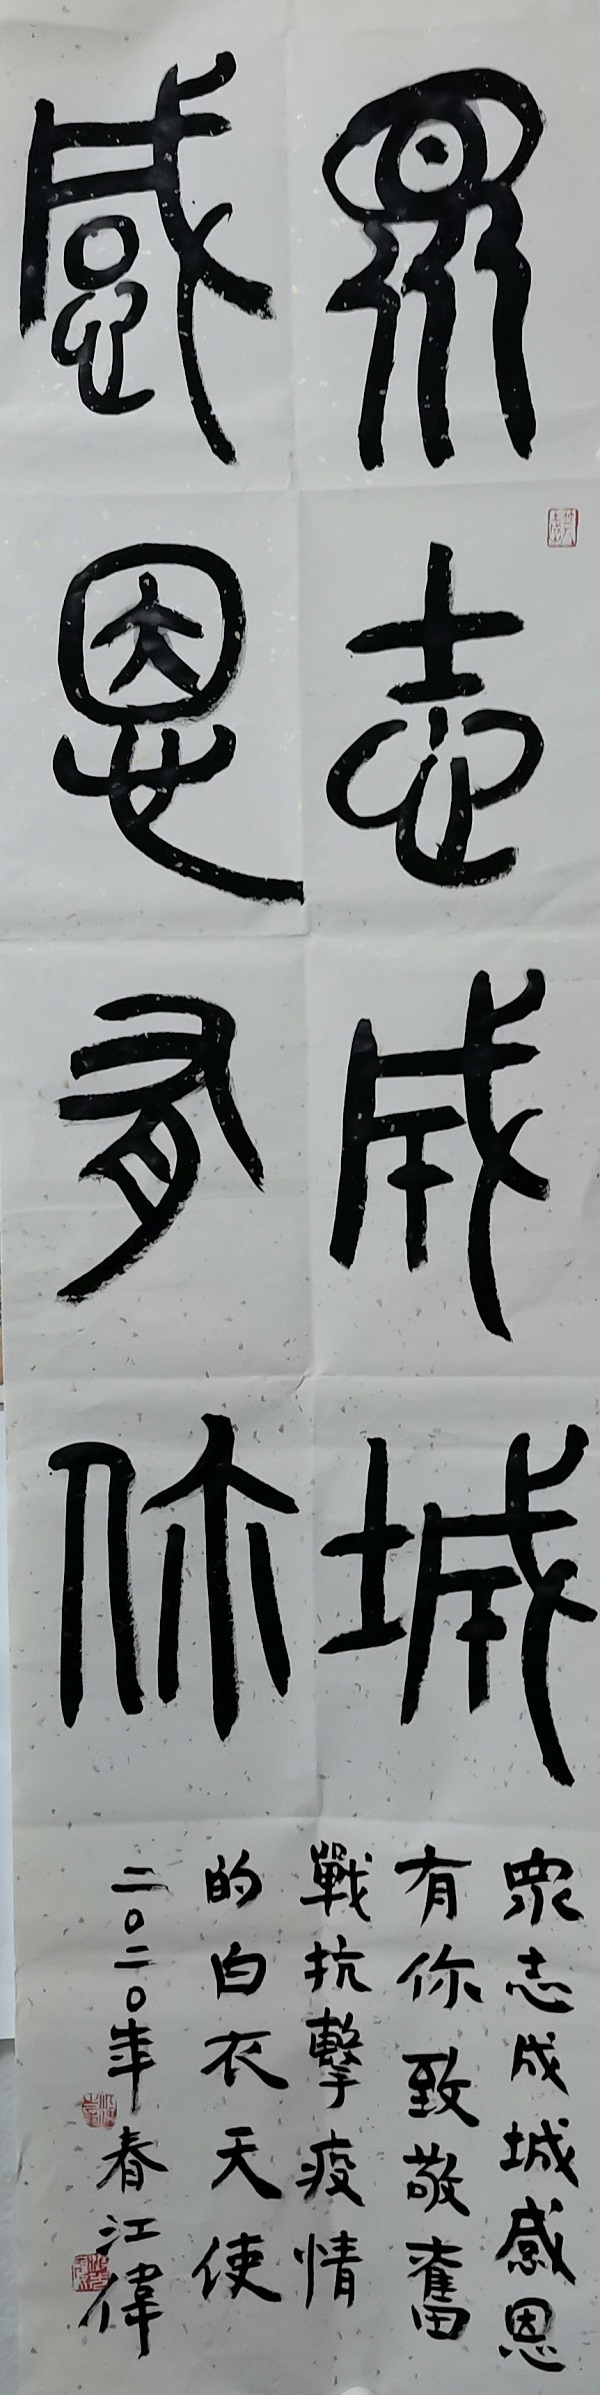 眾志成城
感恩有你
眾志成城感恩
有你致敬奮
戰抗擊疫情
的白衣天使
二〇二〇年春江偉